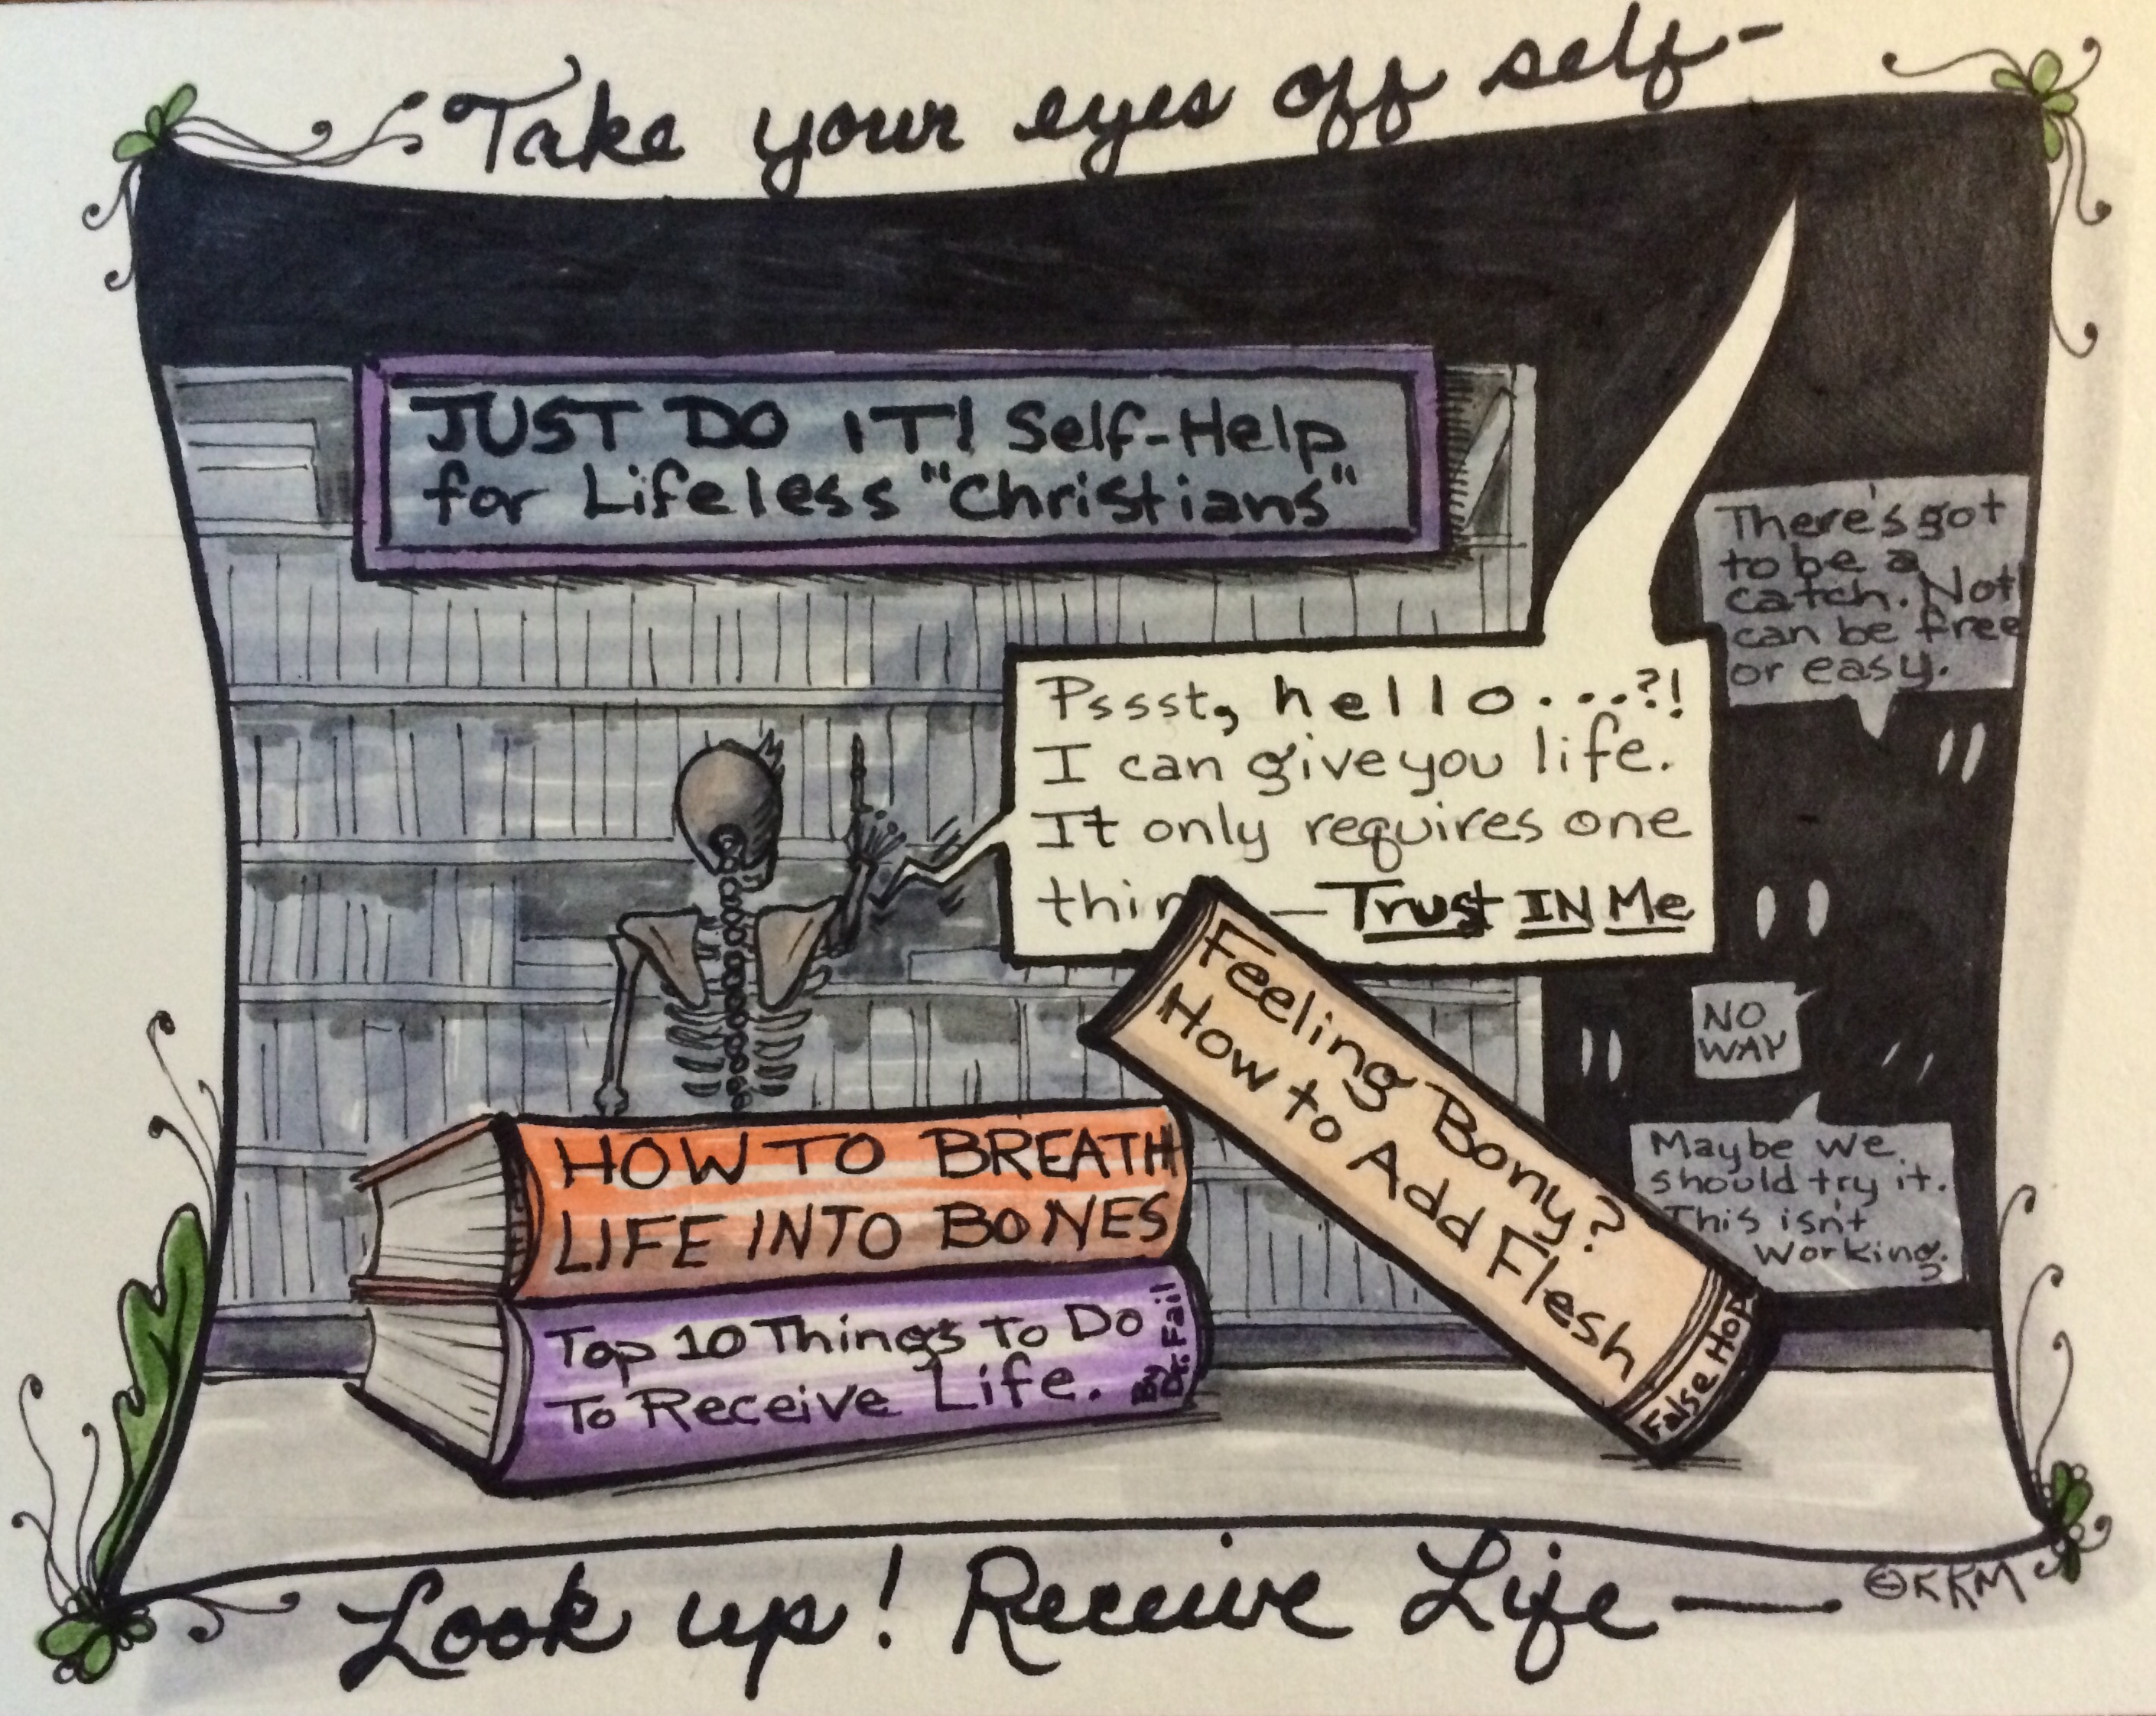 Take your eyes off self-
JUST DO IT! Self-Help
for Lifeless "Christians"
There's got
to be a
catch. Not
can be free
or easy.
Pssst, hello....?!
I can give you life.
It only requires one
thin — Trust IN Me
NO
WAY
Maybe we
should try it.
This isn't
working.
Feeling Bony?
How to Add Flesh
False Hop
HOW TO BREATH
LIFE INTO BONES
Top 10 Things To Do
To Receive Life.
By
Dr. Fail
Look up! Receive Life —
©KRM